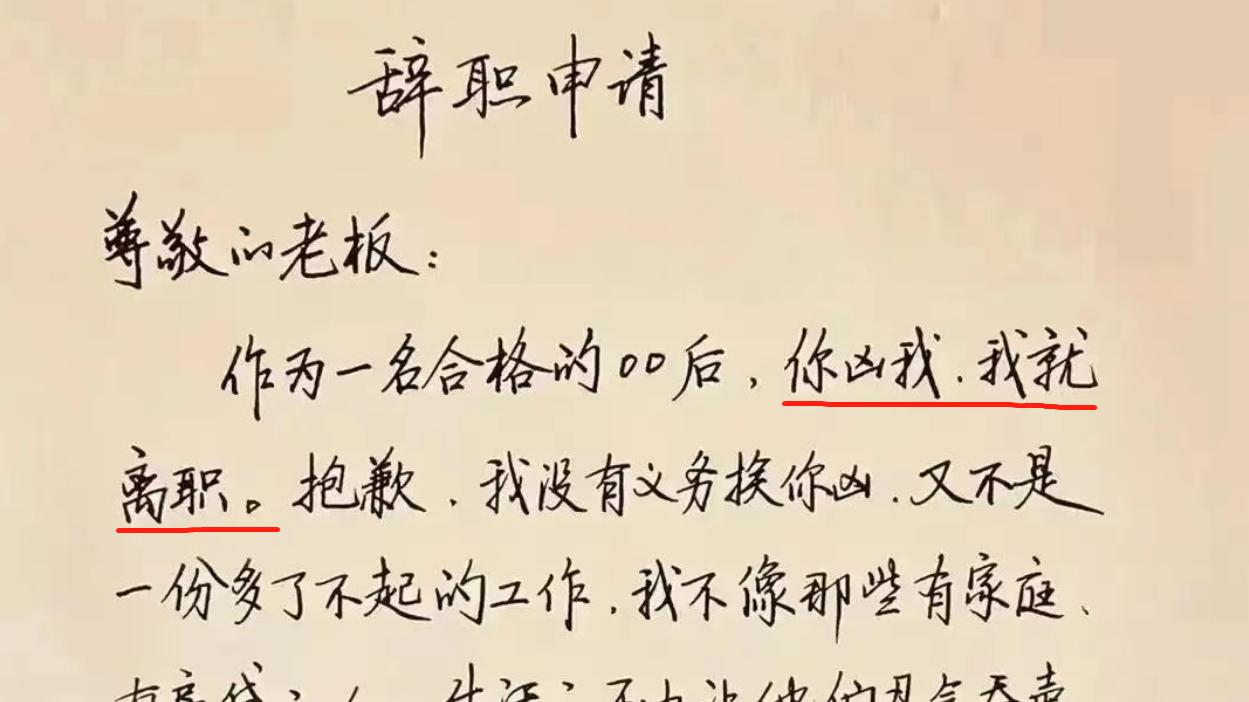 辞职申请
尊敬的老板：
作为一名合格的00后，你凶我，我就
离职。抱歉，我没有义务挨你凶，又不是
一份多了不起的工作，我不像那些有家庭、